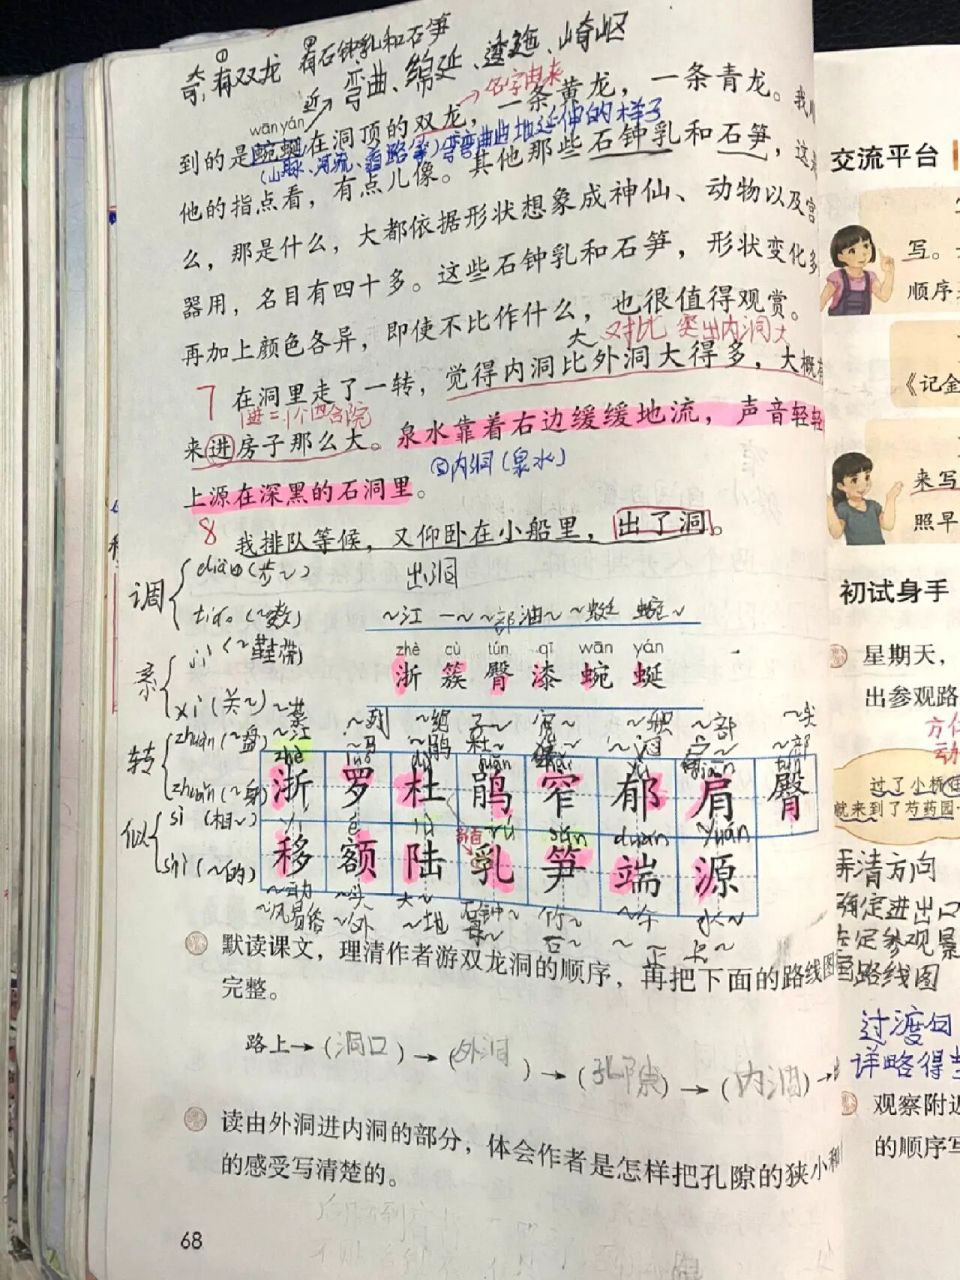 奇,有双龙 有石钟乳和石笋
近→弯曲、绵延、逶迤、崎岖
→名字由来
wān yán
到的是蜿蜒在洞顶的双龙，一条黄龙，一条青龙。我
(山脉、河流、道路等)弯弯曲曲地延伸的样子
他的指点看，有点儿像。其他那些石钟乳和石笋，这
么，那是什么，大都依据形状想象成神仙、动物以及宫
器用，名目有四十多。这些石钟乳和石笋，形状变化多
再加上颜色各异，即使不比作什么，也很值得观赏。
大 对比 突出内洞大
7 在洞里走了一转，觉得内洞比外洞大得多，大概
1进=1个四合院
来进房子那么大。泉水靠着右边缓缓地流，声音轻轻
内洞(泉水)
上源在深黑的石洞里。
8 我排队等候，又仰卧在小船里，出了洞。
出洞
调 diào(步~)
tiáo(~整)
系 jì(~鞋带)
xì(关~)
转 zhuàn(~盘)
zhuǎn(~身)
似 sì(相~)
shì(~的)
~江 一~ ~部 油~ ~蜒 蜿~
zhè cù tún qī wān yán
浙 簇 臀 漆 蜿 蜒
浙 罗 杜 鹃 窄 郁 肩 臀
移 额 陆 乳 笋 端 源
~动 ~头 大~ 石钟~ 竹~ ~午 水~
~风易俗 ~外 ~地 石~ ~正
默读课文，理清作者游双龙洞的顺序，再把下面的路线图
完整。
路上→(洞口)→(外洞)→(孔隙)→(内洞)→
读由外洞进内洞的部分，体会作者是怎样把孔隙的狭小和
的感受写清楚的。
68
交流平台
写。
顺序
《记金
来写
照早
初试身手
星期天，
出参观路
过了小桥
就来到了芍药园
弄清方向
确定进出口
画路线图
过渡句
详略得当
观察附近
的顺序写